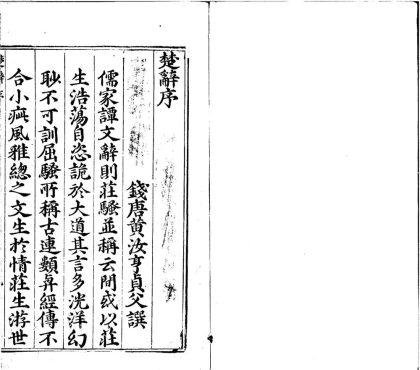 楚辭序
錢唐黄汝亨貞父譔
儒家譚文辭則莊騷並稱云間或以莊
生浩蕩自恣詭於大道其言多洸洋幻
眇不可訓屈騷所稱古連類與經傳不
合小疵風雅總之文生於情莊生游世